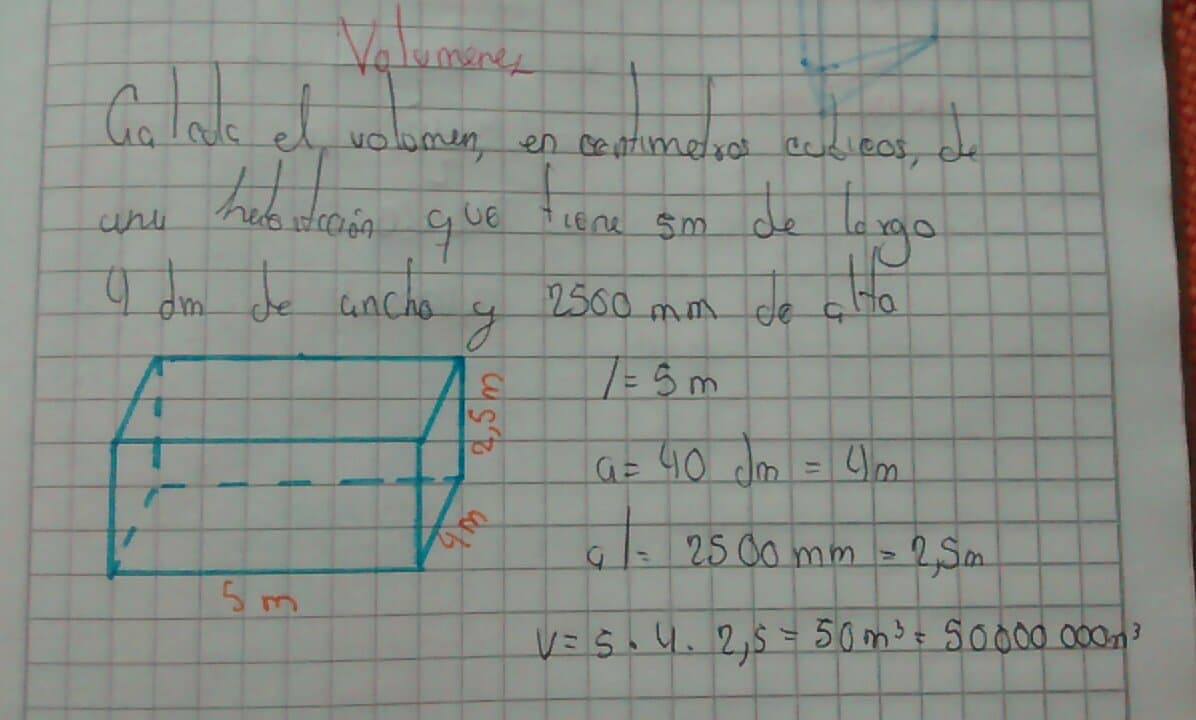 Volumenes
Calcula el volomen, en centimetros cubicos, de
una habitación que tiene 5m de largo
4 dm de ancho y 2500 mm de alto
l = 5 m
2,5 m
a = 40 dm = 4m
4m
al = 2500 mm = 2,5m
5 m
V = 5 . 4 . 2,5 = 50 m³ = 50000 000m³